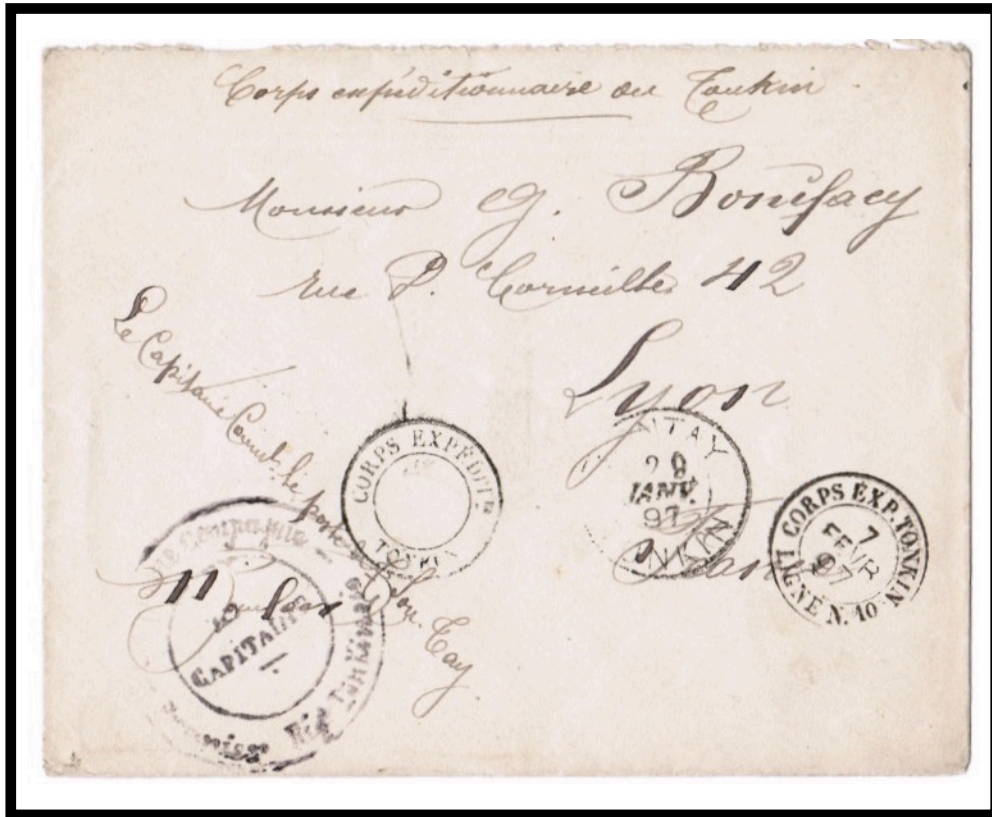 Corps expéditionnaire du Tonkin
Monsieur G. Bonifacy
rue P. Corneille 42
Lyon
Le Capitaine Commdt le poste de Son. Tay
CORPS EXPÉDITre
TONKIN
NTAY
29
JANV.
97
NKIN
CORPS EXP. TONKIN
7
FEVR
97
LIGNE N. 10
Compagnie
CAPITAINE
Rgt Tonkinois